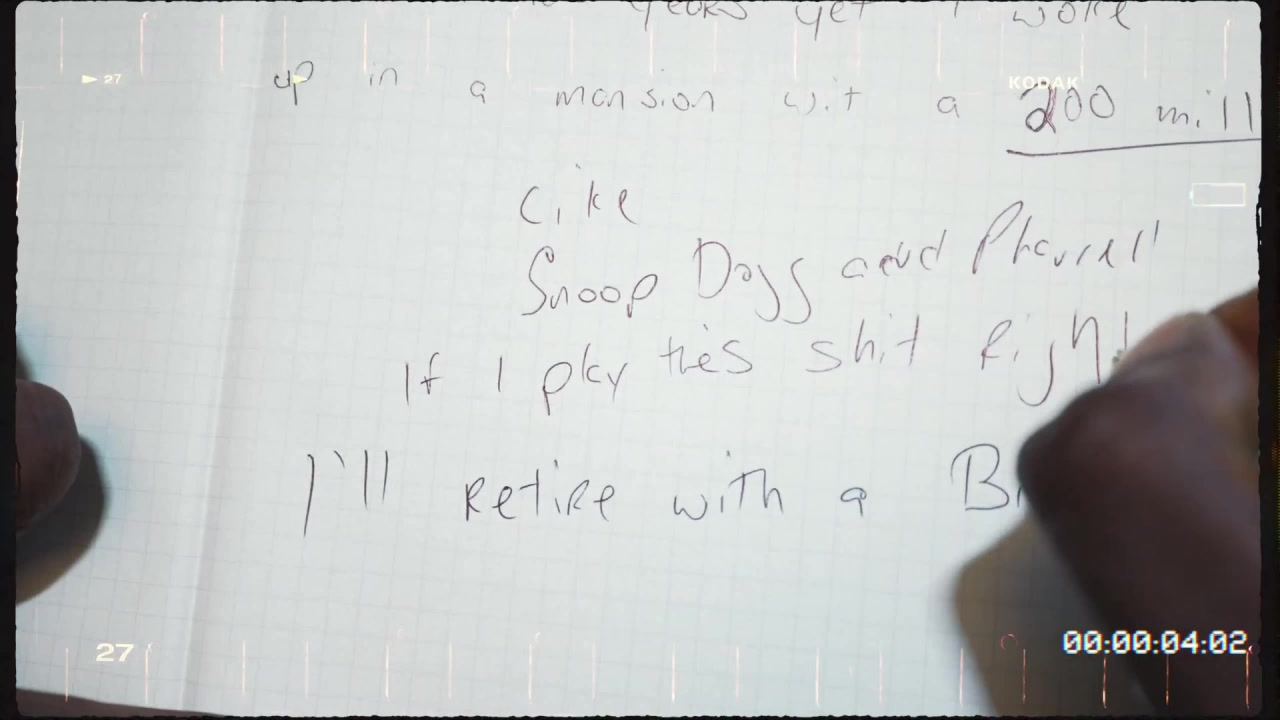 years yet I woke
27
KODAK
up in a mansion wit a 200 mill
Like
Snoop Dogg and Pharrell
If I play this shit Right
I'll retire with a
27
00:00:04:02